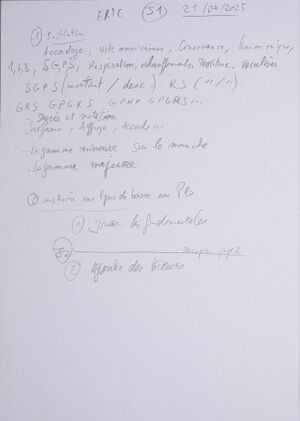 ERIC S1 21/04/2025
① Initiation
Accordage, Note américaines, Consonance, harmonique,
1,3,5, SGPS, Respiration, échauffements, Tessiture, Vocalises
SGPS (montant / desc) RS ("/")
GRS GPGRS GPHP GPGRS...
- Degrés et notation
Solfège, chiffrage, accords...
- La gamme mineure sur le manche
- La gamme majeure
② construire une ligne de basse sur PB
① Jouer les fondamentales
S2 recopier page 2
② Ajouter des tierces